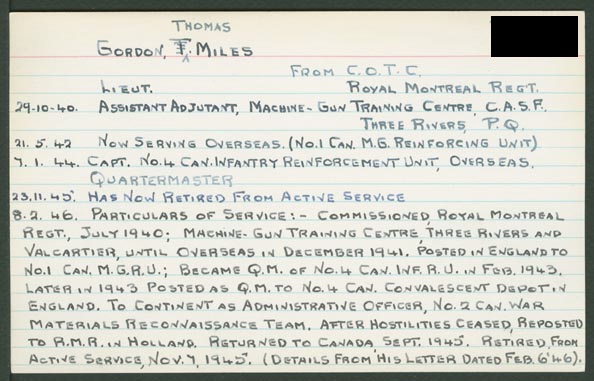 THOMAS
GORDON, T. MILES
FROM C.O.T.C.
LIEUT. ROYAL MONTREAL REGT.
29-10-40. ASSISTANT ADJUTANT, MACHINE-GUN TRAINING CENTRE, C.A.S.F.
THREE RIVERS, P.Q.
21.5.42 NOW SERVING OVERSEAS. (NO.1 CAN. M.G. REINFORCING UNIT)
7.1.44. CAPT. NO.4 CAN. INFANTRY REINFORCEMENT UNIT, OVERSEAS.
QUARTERMASTER
23.11.45. HAS NOW RETIRED FROM ACTIVE SERVICE
8.2.46. PARTICULARS OF SERVICE:- COMMISSIONED ROYAL MONTREAL
REGT., JULY 1940; MACHINE-GUN TRAINING CENTRE, THREE RIVERS AND
VALCARTIER, UNTIL OVERSEAS IN DECEMBER 1941. POSTED IN ENGLAND TO
NO.1 CAN. M.G.R.U.; BECAME Q.M. OF NO.4 CAN. INF. R.U. IN FEB. 1943.
LATER IN 1943 POSTED AS Q.M. TO NO.4 CAN. CONVALESCENT DEPOT IN
ENGLAND. TO CONTINENT AS ADMINISTRATIVE OFFICER, NO.2 CAN. WAR
MATERIALS RECONNAISSANCE TEAM. AFTER HOSTILITIES CEASED, REPOSTED
TO R.M.R. IN HOLLAND. RETURNED TO CANADA SEPT. 1945. RETIRED FROM
ACTIVE SERVICE, NOV. 7, 1945. (DETAILS FROM HIS LETTER DATED FEB. 6'46).